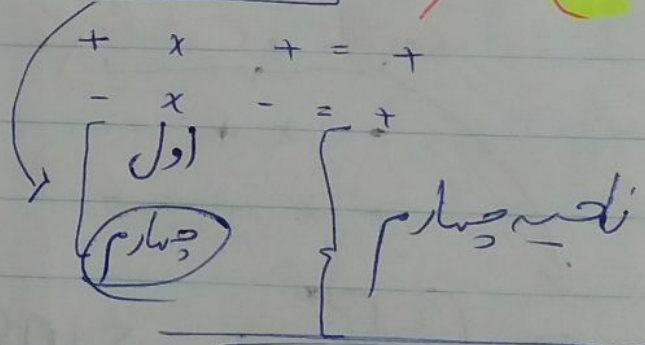 + x + = +
- x - = +
اول
چهارم
ناحیه چهارم